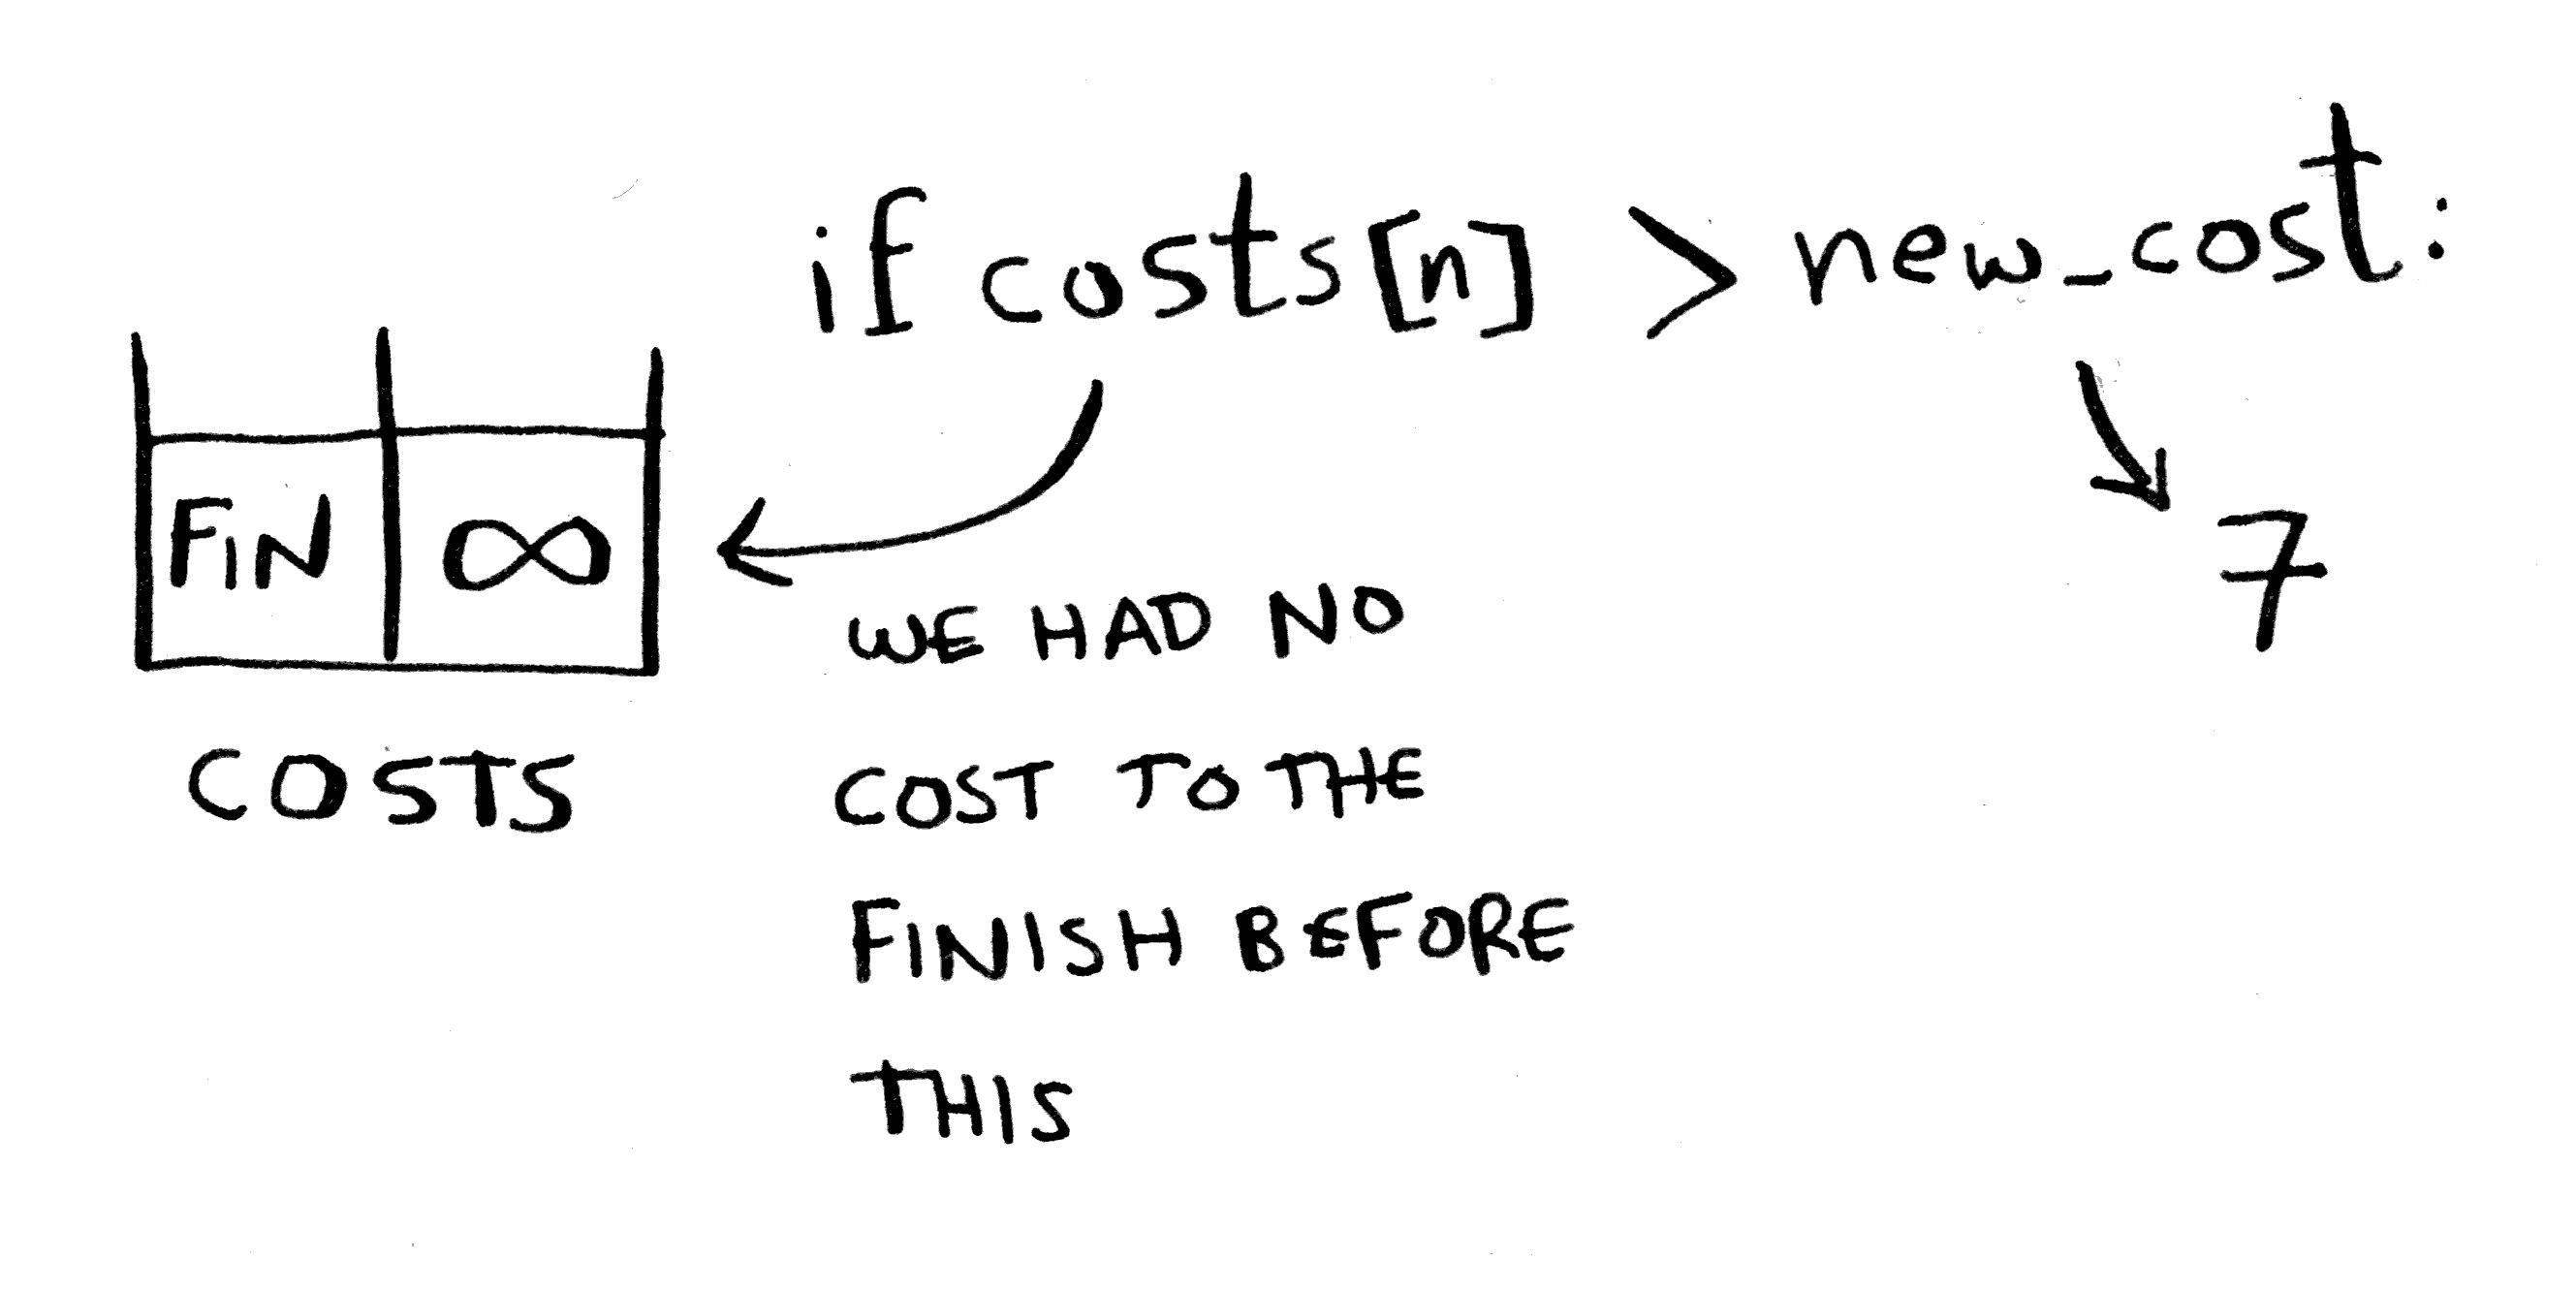 if costs[n] > new_cost:
FIN ∞
COSTS
7
WE HAD NO
COST TO THE
FINISH BEFORE
THIS